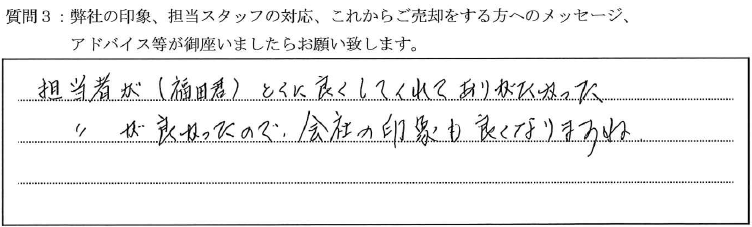 質問3：弊社の印象、担当スタッフの対応、これからご売却をする方へのメッセージ、
アドバイス等が御座いましたらお願い致します。
担当者が（福田君）とくに良くしてくれてありがたかった
〃 が良かったので、会社の印象も良くなりますね。